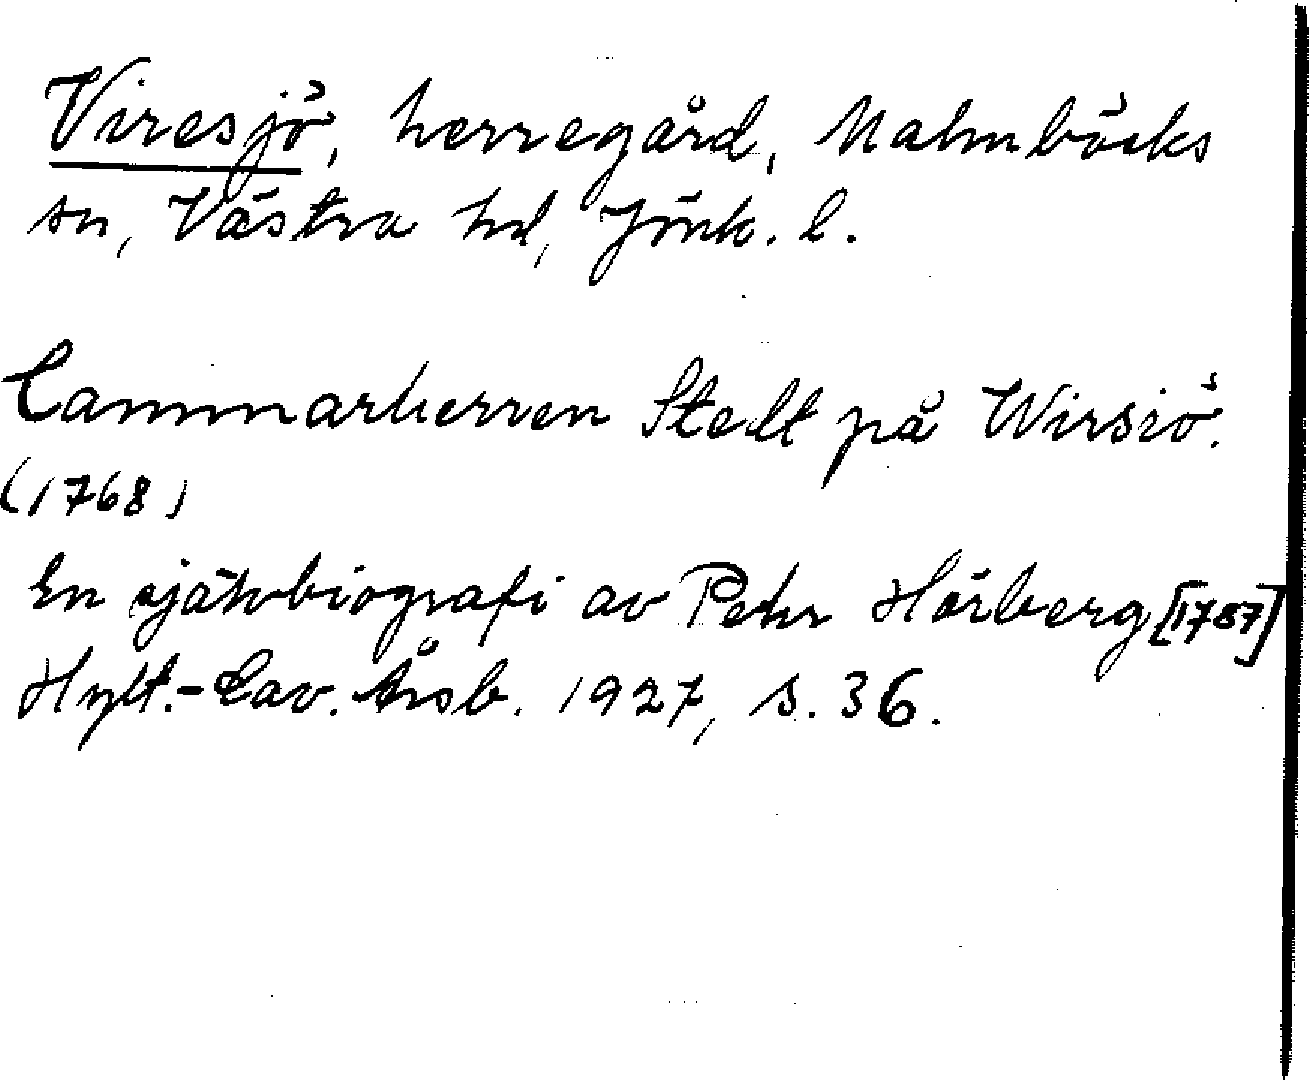 Viresjö, herregård, Malmbäcks
sn, Västra hd, Jönk. l.
Cammarherren Stedt på Wirsiö.
(1768)
En självbiografi av Pehr Hörberg [1787]
Hylt.-Cav. Årsb. 1927, s. 36.